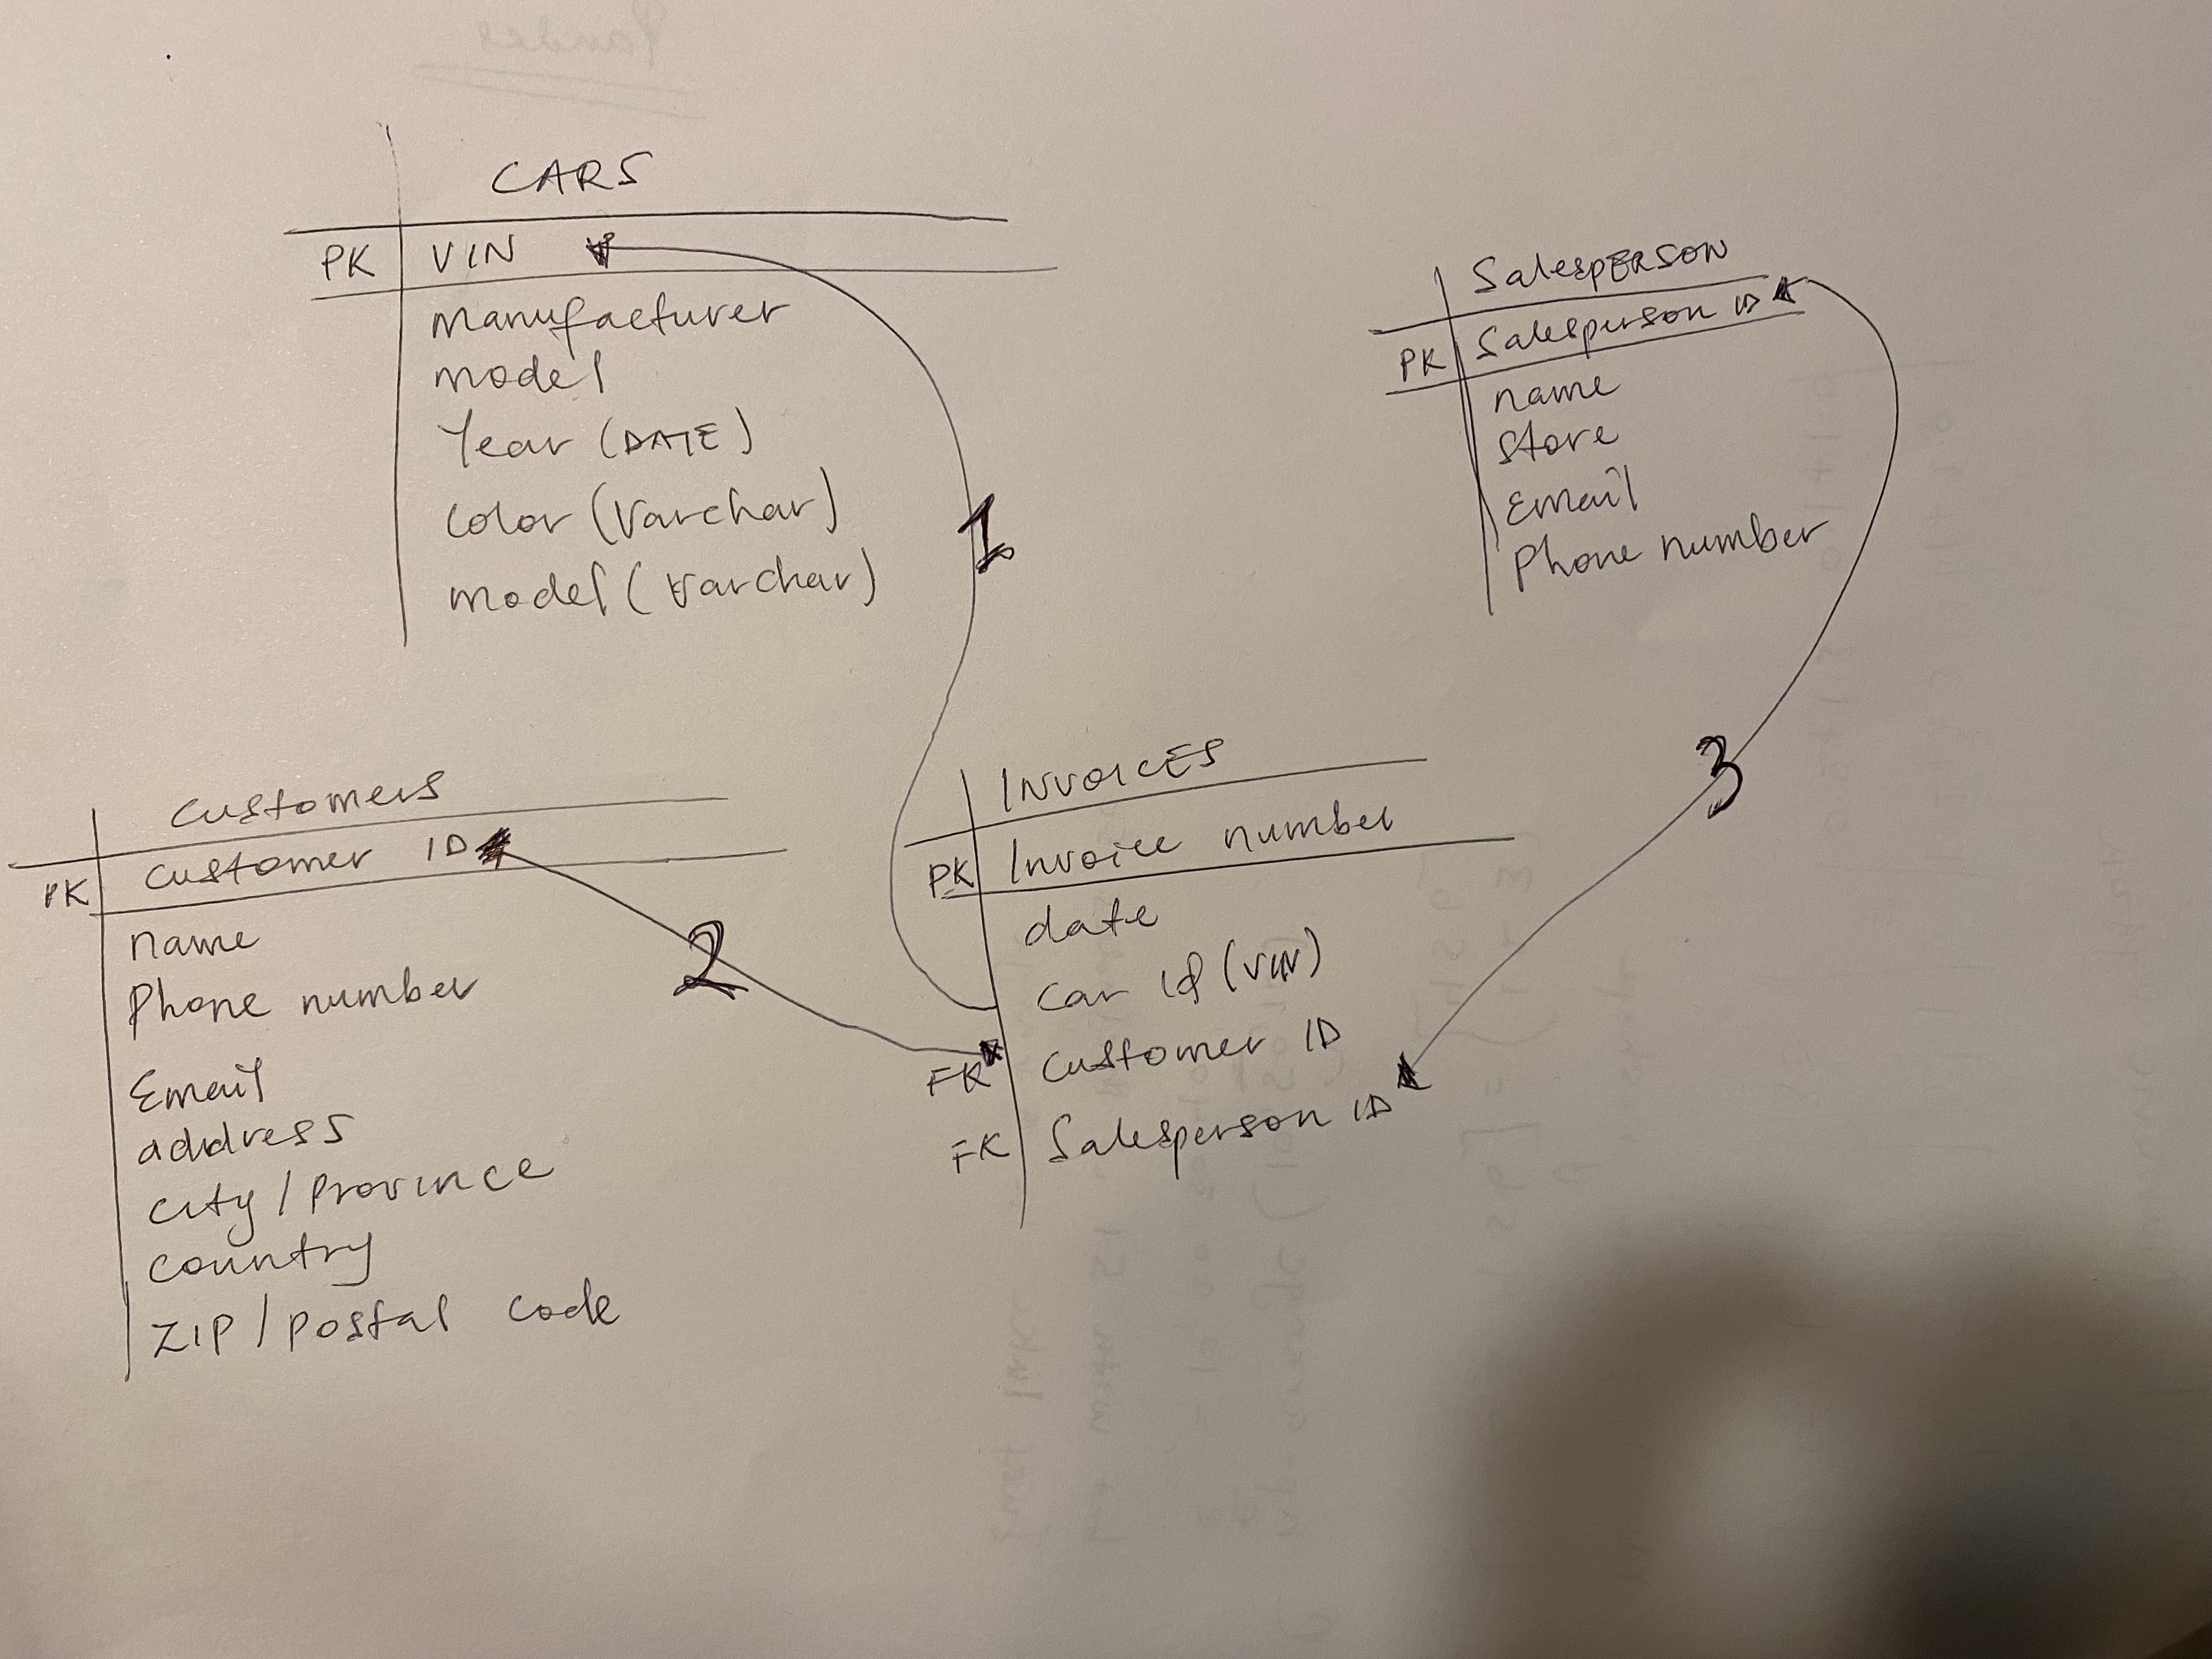 CARS
PK VIN
Manufacturer
model
Year (DATE)
Color (Varchar)
model (Varchar)
1
SalespERSON
PK Salesperson ID
name
store
Email
Phone number
3
Customers
PK Customer ID
name
Phone number
Email
address
City / Province
Country
ZIP / Postal Code
2
INVOICES
PK Invoice number
date
Car id (VIN)
FK Customer ID
FK Salesperson ID